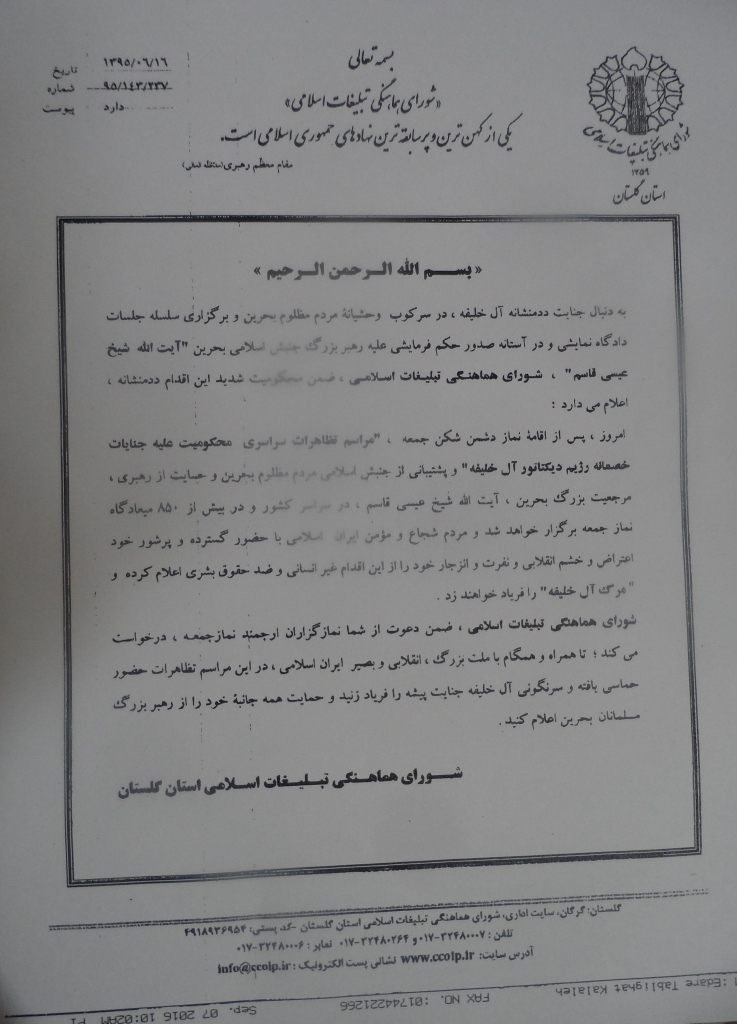 بسمه تعالی
«شورای هماهنگی تبلیغات اسلامی»
یکی از کهن ترین و پرسابقه ترین نهادهای جمهوری اسلامی است.
مقام معظم رهبری (مدظله العالی)
شورای هماهنگی تبلیغات اسلامی
۱۳۵۹
استان گلستان
تاریخ ۱۳۹۵/۰۶/۱۶
شماره ۹۵/۱۴۳/۲۳۷
پیوست دارد
« بسم الله الرحمن الرحیم »
به دنبال جنایت ددمنشانه آل خلیفه ، در سرکوب وحشیانهٔ مردم مظلوم بحرین و برگزاری سلسله جلسات
دادگاه نمایشی و در آستانه صدور حکم فرمایشی علیه رهبر بزرگ جنبش اسلامی بحرین "آیت الله شیخ
عیسی قاسم" ، شورای هماهنگی تبلیغات اسلامی ، ضمن محکومیت شدید این اقدام ددمنشانه ،
اعلام می دارد :
امروز ، پس از اقامهٔ نماز دشمن شکن جمعه ، "مراسم تظاهرات سراسری محکومیت علیه جنایات
خصمانه رژیم دیکتاتور آل خلیفه" و پشتیبانی از جنبش اسلامی مردم مظلوم بحرین و حمایت از رهبری ،
مرجعیت بزرگ بحرین ، آیت الله شیخ عیسی قاسم ، در سراسر کشور و در بیش از ۸۵۰ میعادگاه
نماز جمعه برگزار خواهد شد و مردم شجاع و مؤمن ایران اسلامی با حضور گسترده و پرشور خود
اعتراض و خشم انقلابی و نفرت و انزجار خود را از این اقدام غیر انسانی و ضد حقوق بشری اعلام کرده و
"مرگ آل خلیفه" را فریاد خواهند زد .
شورای هماهنگی تبلیغات اسلامی ، ضمن دعوت از شما نمازگزاران ارجمند نمازجمعه ، درخواست
می کند ؛ تا همراه و همگام با ملت بزرگ ، انقلابی و بصیر ایران اسلامی ، در این مراسم تظاهرات حضور
حماسی یافته و سرنگونی آل خلیفه جنایت پیشه را فریاد زنید و حمایت همه جانبهٔ خود را از رهبر بزرگ
مسلمانان بحرین اعلام کنید .
شورای هماهنگی تبلیغات اسلامی استان گلستان
گلستان: گرگان، سایت اداری، شورای هماهنگی تبلیغات اسلامی استان گلستان -کد پستی: ۴۹۱۸۹۳۶۹۵۴
تلفن : ۳۲۴۸۰۰۰۷-۰۱۷ و ۳۲۴۸۰۲۶۴-۰۱۷ نمابر : ۳۲۴۸۰۰۰۶-۰۱۷
آدرس سایت: www.ccoip.ir نشانی پست الکترونیک : info@ccoip.ir
:Edare Tablighat Kalaleh FAX NO. :01744221266 Sep. 07 2016 10:02AM P1